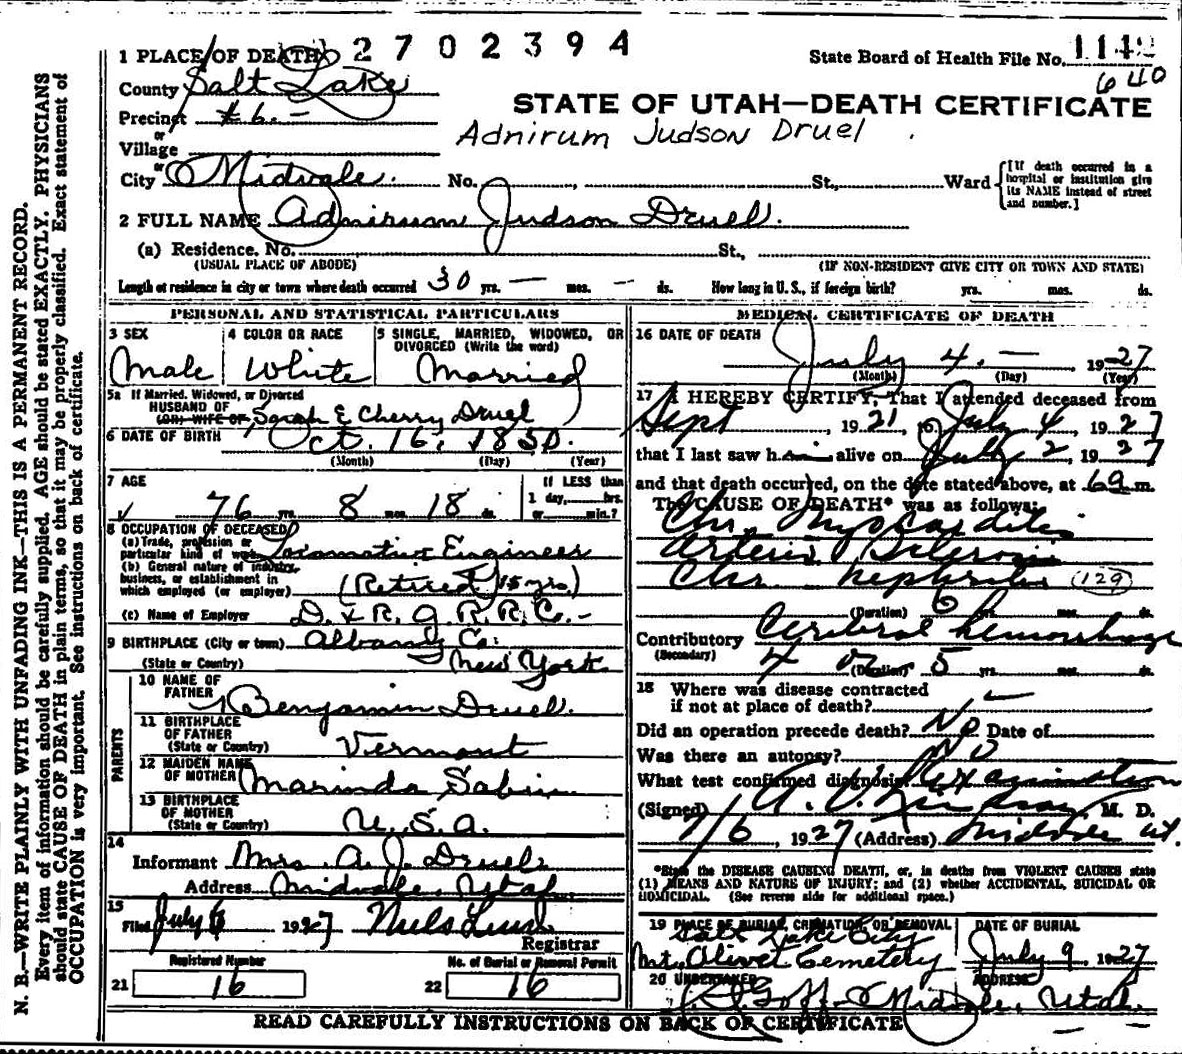 2702394
1 PLACE OF DEATH
State Board of Health File No. 1142
640
County Salt Lake
STATE OF UTAH—DEATH CERTIFICATE
Precinct #6. -
Adnirum Judson Druel
or
Village
or
City Midvale. No. St., Ward
[If death occurred in a hospital or institution give its NAME instead of street and number.]
2 FULL NAME Adnirum Judson Druel.
(a) Residence. No. St.,
(USUAL PLACE OF ABODE) (IF NON-RESIDENT GIVE CITY OR TOWN AND STATE)
Length of residence in city or town where death occurred 30 yrs. — mos. - ds. How long in U. S., if foreign birth? yrs. mos. ds.
PERSONAL AND STATISTICAL PARTICULARS
3 SEX
Male
4 COLOR OR RACE
White
5 SINGLE, MARRIED, WIDOWED, OR
DIVORCED (Write the word)
Married
5a If Married, Widowed, or Divorced
HUSBAND OF
(OR) WIFE OF Sarah E Cherry Druel
6 DATE OF BIRTH Oct. 16, 1850.
(Month) (Day) (Year)
7 AGE
76 yrs. 8 mos. 18 ds.
If LESS than
1 day, hrs.
or min.?
8 OCCUPATION OF DECEASED
(a) Trade, profession or
particular kind of work Locomotive Engineer
(b) General nature of industry,
business, or establishment in
which employed (or employer) (Retired 15 yrs.)
(c) Name of Employer D. & R. G. R. R. Co. -
9 BIRTHPLACE (City or town) Albany Co.
(State or Country) New York
PARENTS
10 NAME OF
FATHER Benjamin Druel.
11 BIRTHPLACE
OF FATHER
(State or Country) Vermont
12 MAIDEN NAME
OF MOTHER Marinda Sabin
13 BIRTHPLACE
OF MOTHER
(State or Country) U. S. A.
14
Informant Mrs. A. J. Druel
Address Midvale, Utah
15
Filed July 6 1927 Niels Lind
Registrar
Registered Number
21 16
No. of Burial or Removal Permit
22 16
MEDICAL CERTIFICATE OF DEATH
16 DATE OF DEATH
July 4. — 1927
(Month) (Day) (Year)
17 I HEREBY CERTIFY, That I attended deceased from
Sept 1921, to July 4, 1927
that I last saw him alive on July 2, 1927
and that death occurred, on the date stated above, at m.
The CAUSE OF DEATH* was as follows:
Chr. Myocarditis
Arterio Sclerosis
Chr nephritis (129)
(Duration) 6 yrs. mos. ds.
Contributory Cerebral hemorrhage
(Secondary)
4 or 5
(Duration) yrs. mos. ds.
18 Where was disease contracted
if not at place of death?
Did an operation precede death? No Date of
Was there an autopsy? No
What test confirmed diagnosis? examination
(Signed) A. V. Lindsay, M. D.
7/6, 1927 (Address) Midvale Ut.
*State the DISEASE CAUSING DEATH, or, in deaths from VIOLENT CAUSES state
(1) MEANS AND NATURE OF INJURY; and (2) whether ACCIDENTAL, SUICIDAL OR
HOMICIDAL. (See reverse side for additional space.)
19 PLACE OF BURIAL, CREMATION, OR REMOVAL
Salt Lake City
Mt. Olivet Cemetery
DATE OF BURIAL
July 9 1927
20 UNDERTAKER
Goff
ADDRESS
Midvale, Utah.
READ CAREFULLY INSTRUCTIONS ON BACK OF CERTIFICATE
N. B.—WRITE PLAINLY WITH UNFADING INK—THIS IS A PERMANENT RECORD.
Every item of information should be carefully supplied. AGE should be stated EXACTLY. PHYSICIANS
should state CAUSE OF DEATH in plain terms, so that it may be properly classified. Exact statement of
OCCUPATION is very important. See instructions on back of certificate.